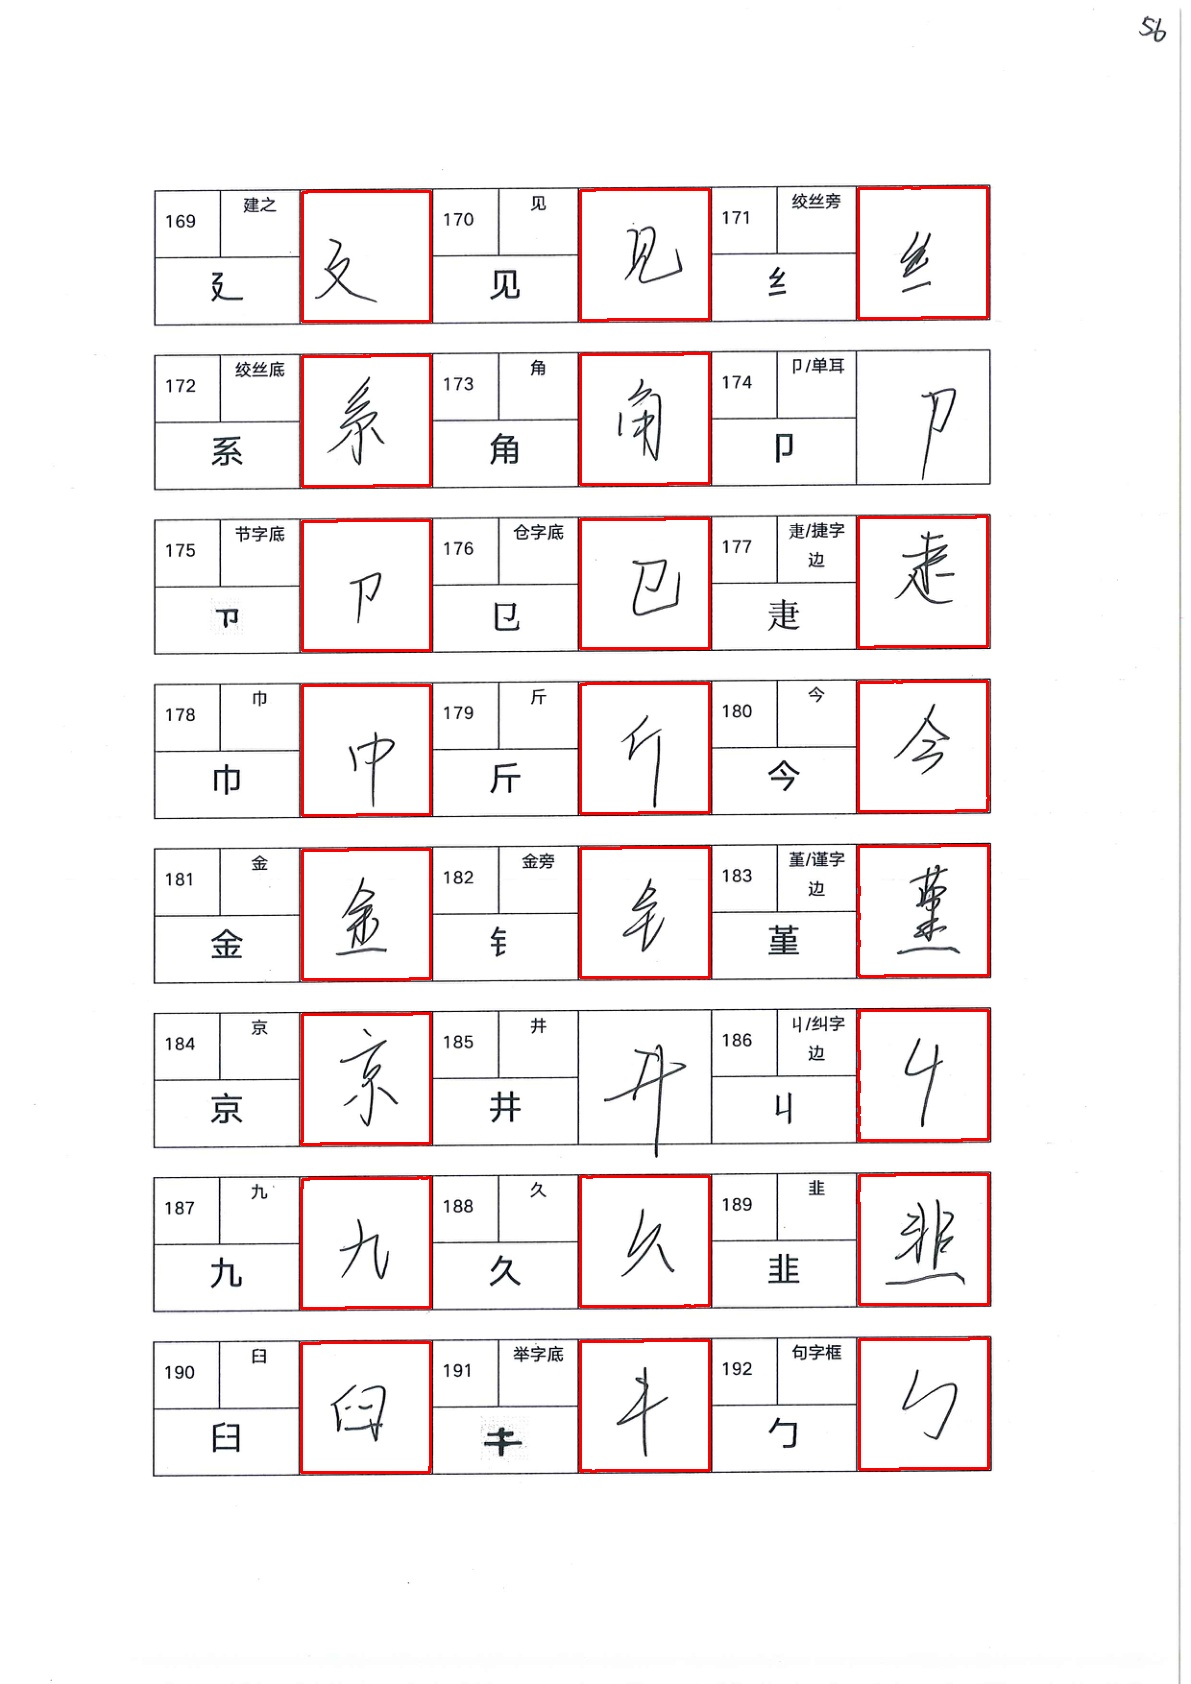 56
169 建之 廴 廴 170 见 见 见 171 绞丝旁 纟 纟
172 绞丝底 系 系 173 角 角 角 174 卩/单耳 卩 卩
175 节字底 卩 卩 176 仓字底 㔾 㔾 177 疌/捷字边 疌 疌
178 巾 巾 巾 179 斤 斤 斤 180 今 今 今
181 金 金 金 182 金旁 钅 钅 183 堇/谨字边 堇 堇
184 京 京 京 185 井 井 井 186 丩/纠字边 丩 丩
187 九 九 九 188 久 久 久 189 韭 韭 韭
190 臼 臼 臼 191 举字底 192 句字框 勹 勹